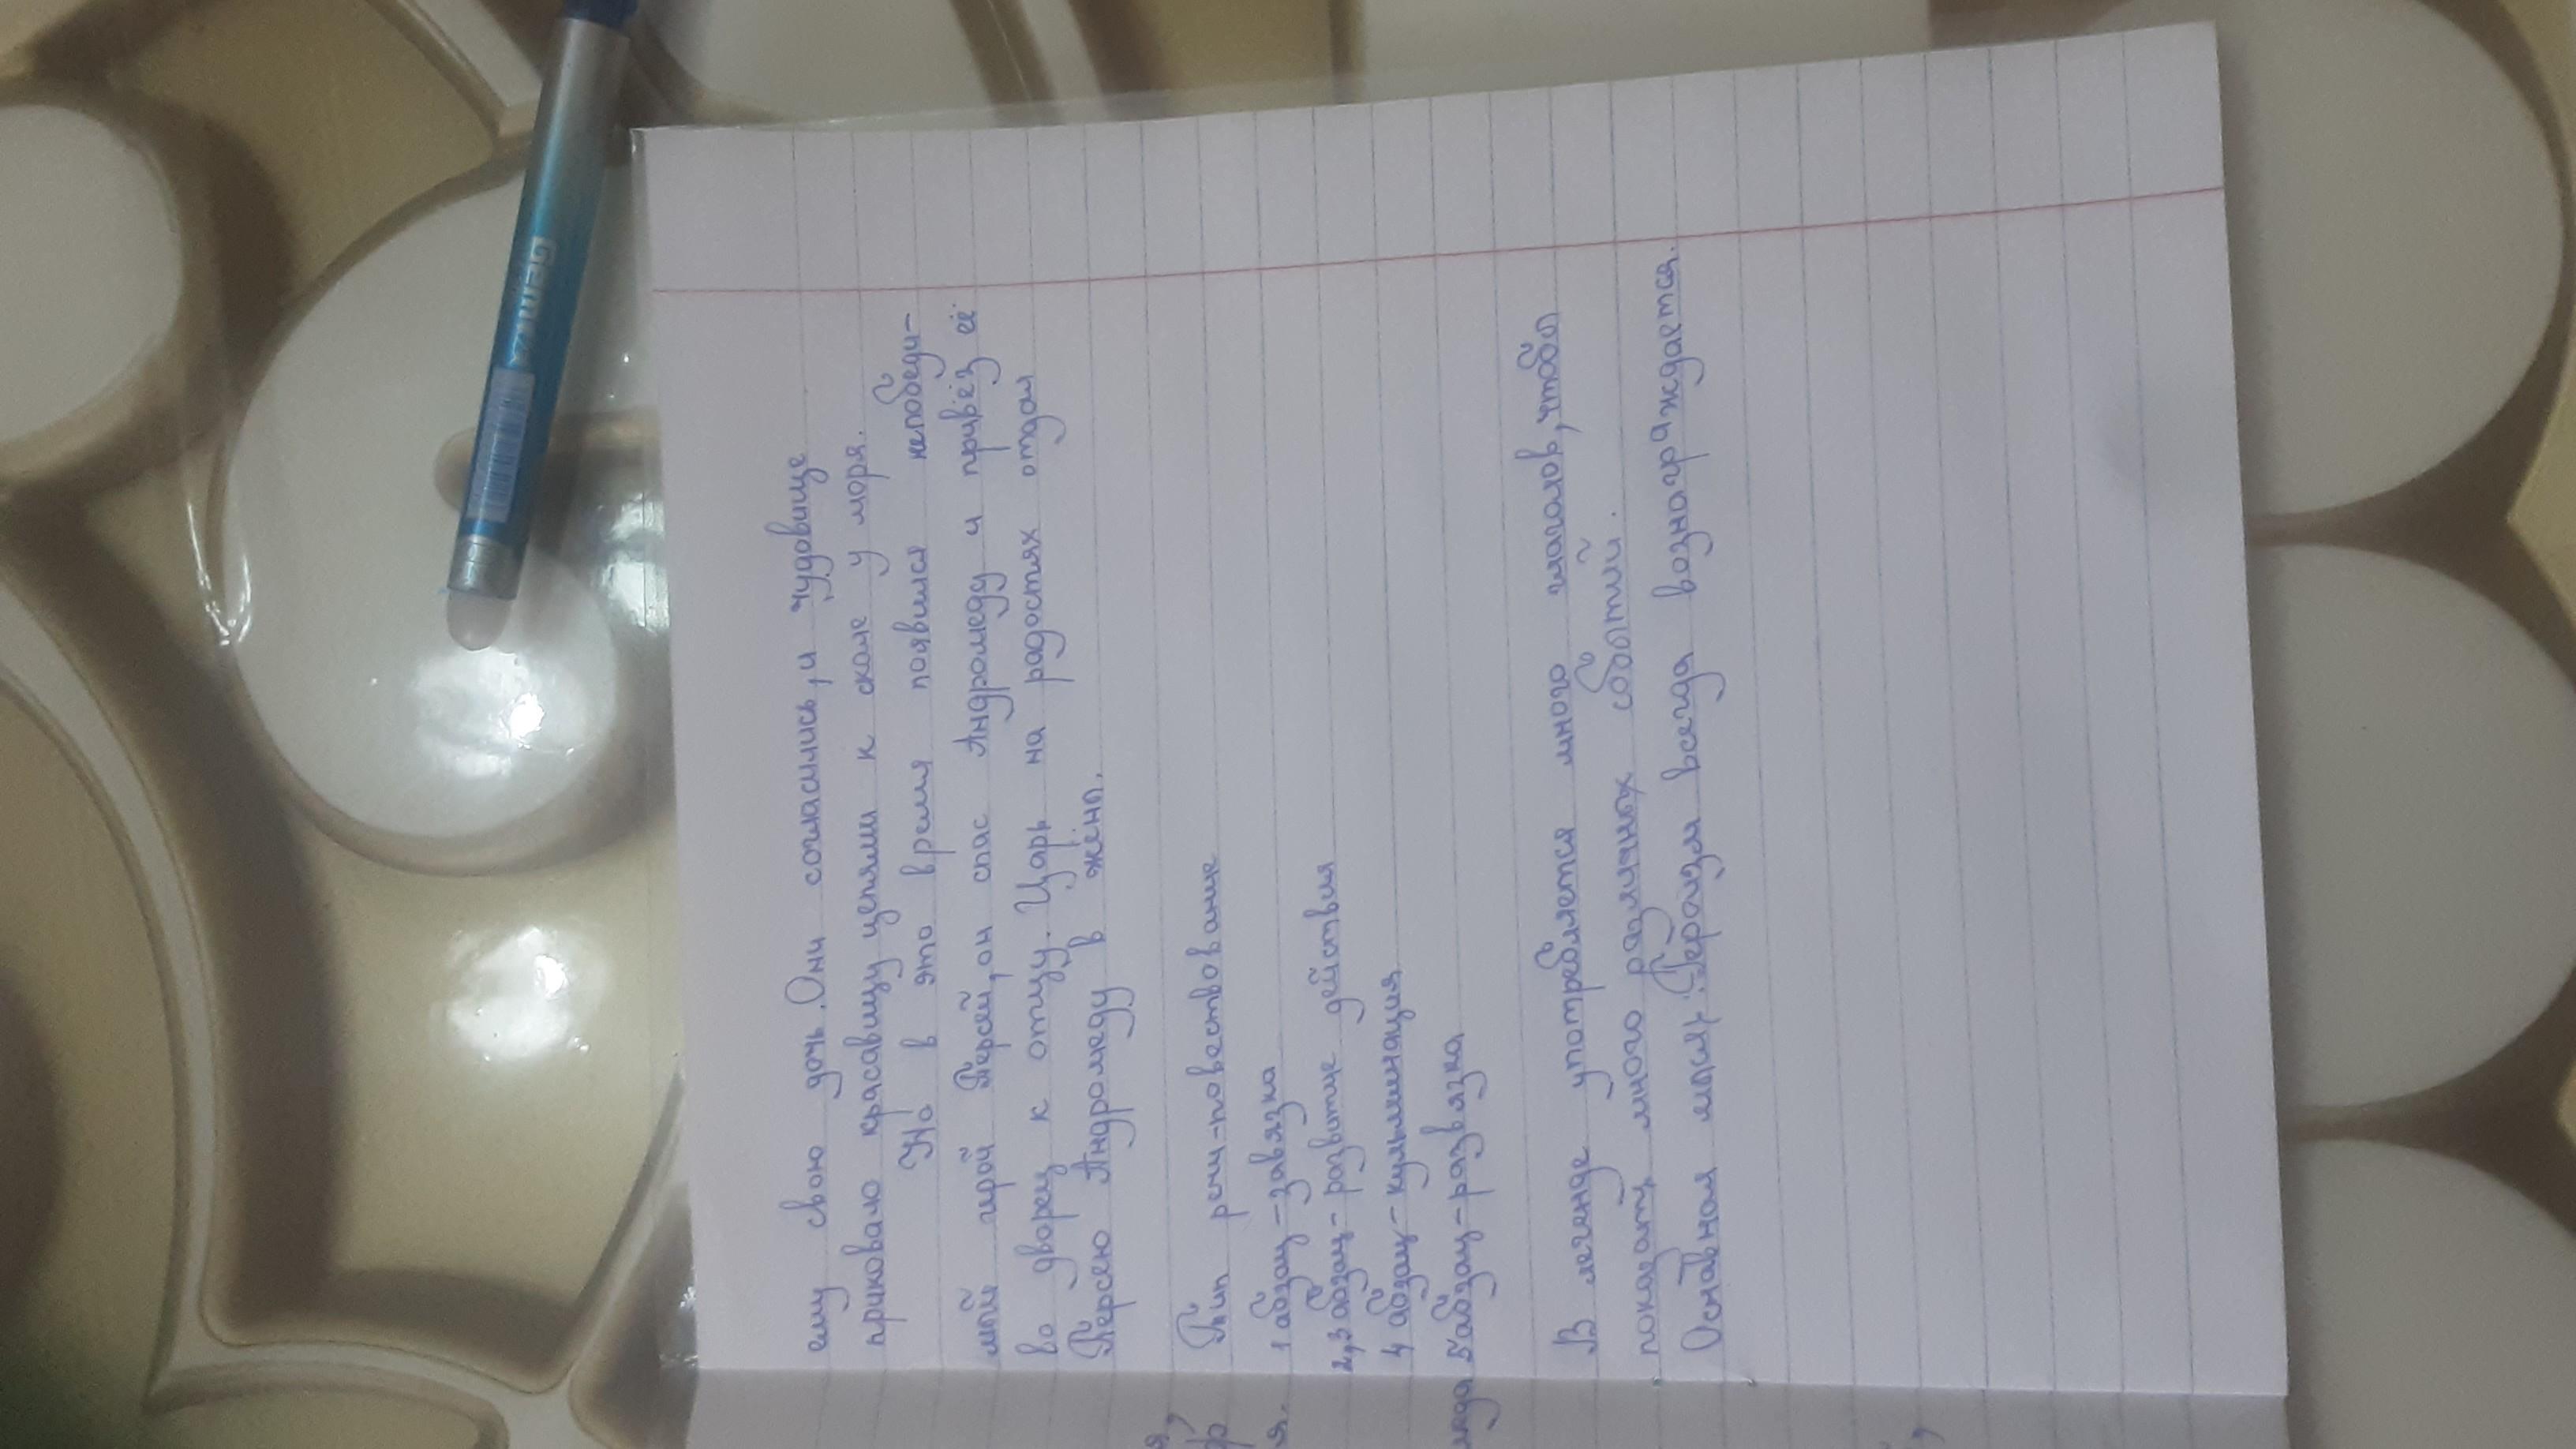 ему свою дочь. Они согласились, и чудовище
приковало красавицу цепями к скале у моря.
Но в это время появился непобеди-
мый герой Персей, он спас Андромеду и привёз её
во дворец к отцу. Царь на радостях отдал
Персею Андромеду в жёны.
Тип речи-повествование
1 абзац-завязка
2,3 абзац- развитие действия
4 абзац-кульминация
5 абзац-развязка
В легенде употребляется много глаголов, чтобы
показать много различных событий.
Основная мысль: Героизм всегда вознаграждается.
меда
я.
Gentza